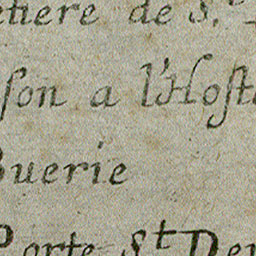 etiere de S.t
son a l'Hoste
Buerie
Porte St Den